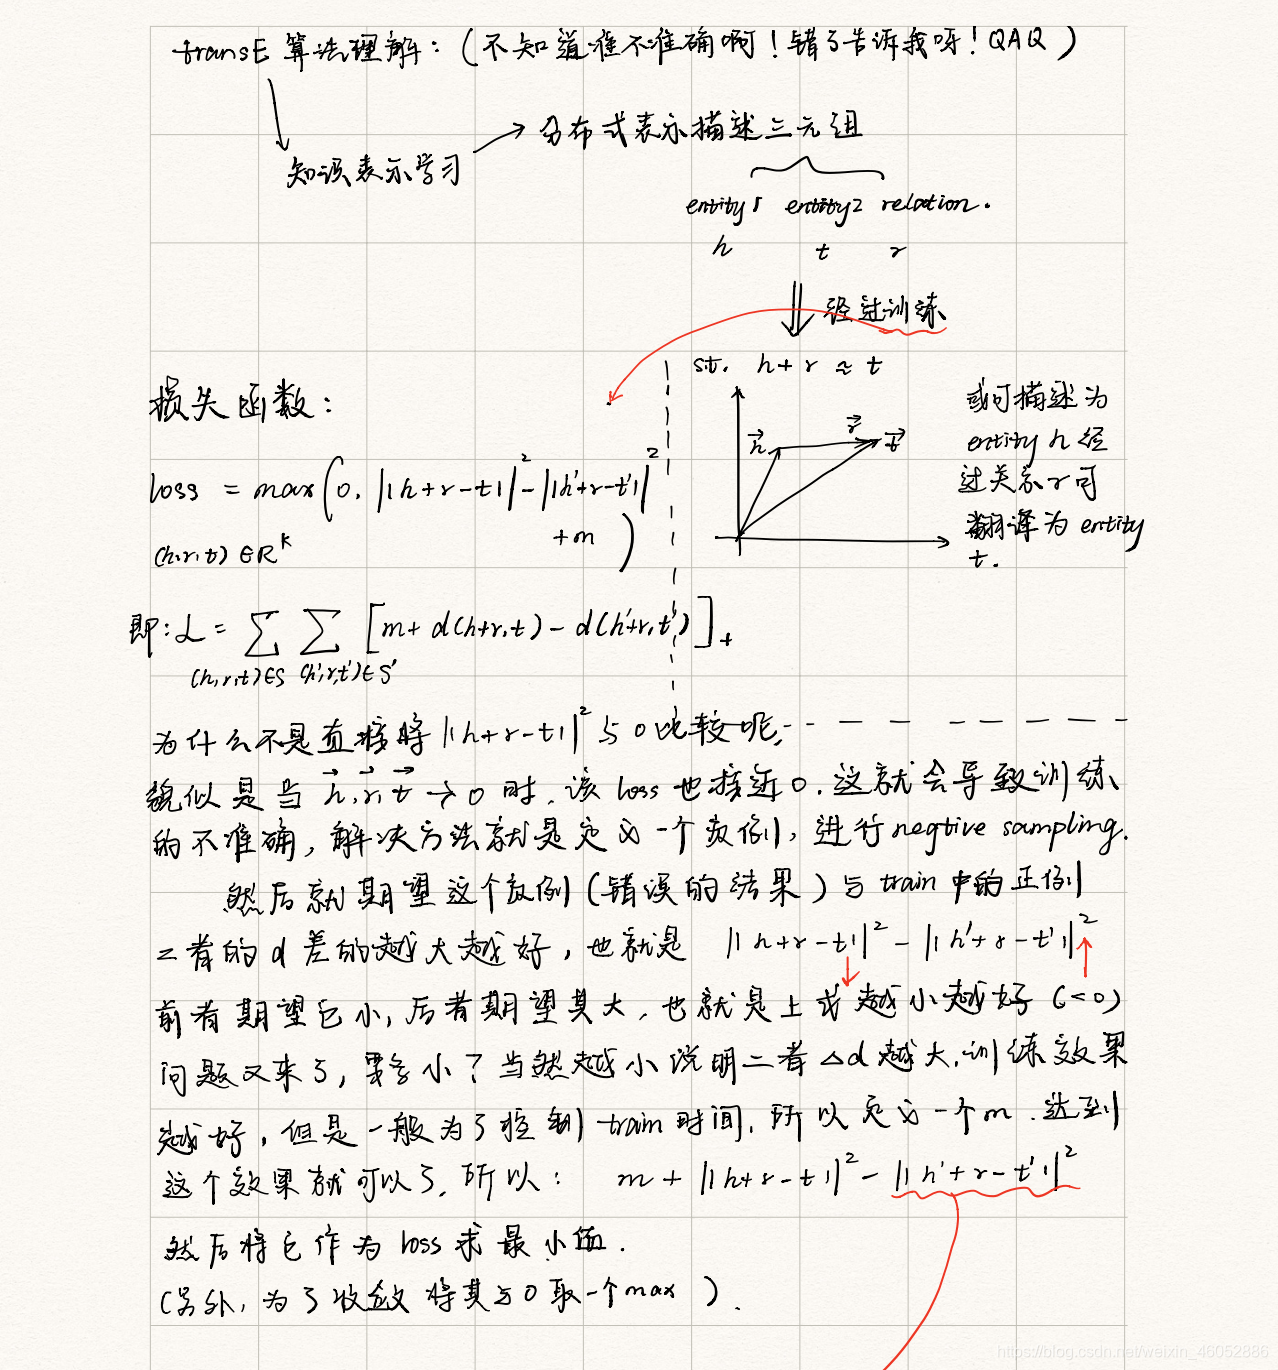 transE 算法理解：(不知道准不准确啊！错了告诉我呀！QAQ)
→ 分布式表示描述三元组
知识表示学习
entity1 entity2 relation.
h t r
经过训练
s.t. h+r ≈ t
损失函数：
h r t
或可描述为
entity h 经
过关系r可
翻译为 entity
t.
loss = max(0, ||h+r-t||² - ||h'+r-t'||²
+m)
(h,r,t) ∈ R^k
即：L = ∑ ∑ [m+ d(h+r,t) - d(h'+r,t')]₊
(h,r,t)∈S (h',r,t')∈S'
为什么不是直接将||h+r-t||²与0比较呢,
貌似是当 h,r,t → 0 时，该 loss 也接近0. 这就会导致训练
的不准确，解决方法就是定义一个负例，进行negtive sampling.
然后就期望这个负例(错误的结果)与train中的正例
二者的d差的越大越好，也就是 ||h+r-t||² - ||h'+r-t'||²
前者期望它小，后者期望其大，也就是上式越小越好 (<0)
问题又来了，要多小？当然越小说明二者△d越大，训练效果
越好，但是一般为了控制train时间，所以定义一个m. 达到
这个效果就可以了，所以： m + ||h+r-t||² - ||h'+r-t'||²
然后将它作为 loss 求最小值.
(另外，为了收敛将其与0取一个max).
https://blog.csdn.net/weixin_46052886